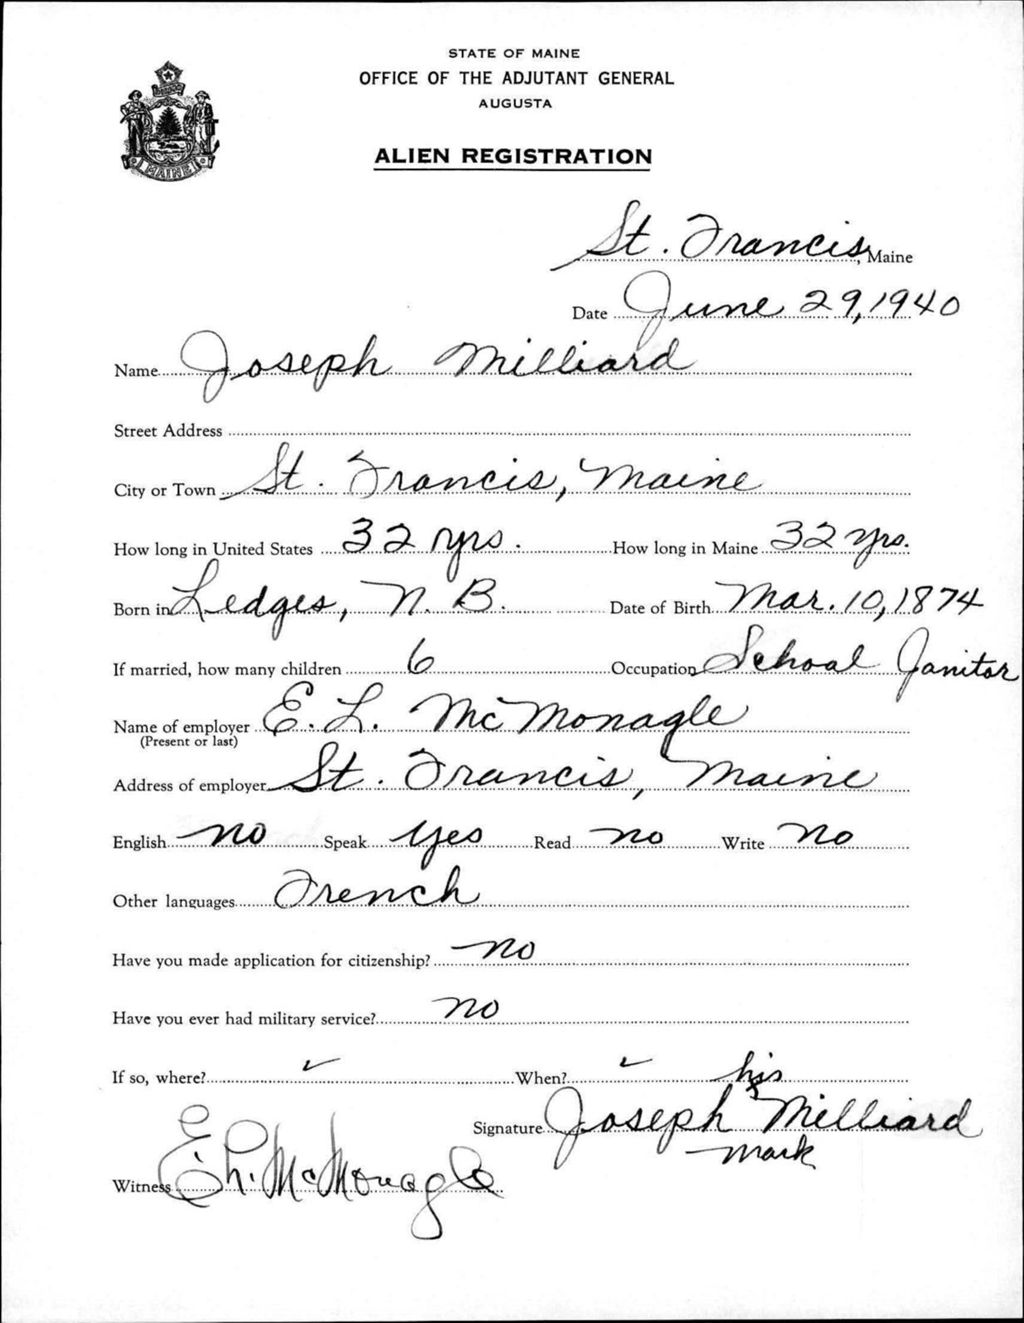 STATE OF MAINE
OFFICE OF THE ADJUTANT GENERAL
AUGUSTA
MAINE
ALIEN REGISTRATION
St. Francis, Maine
Date June 29, 1940
Name Joseph Milliard
Street Address
City or Town St. Francis, Maine
How long in United States 32 yrs. How long in Maine 32 yrs.
Born in Ledges, N. B. Date of Birth Mar. 10, 1874
If married, how many children 6 Occupation School Janitor
Name of employer E. L. McMonagle
(Present or last)
Address of employer St. Francis, Maine
English no Speak yes Read no Write no
Other languages French
Have you made application for citizenship? no
Have you ever had military service? no
If so, where? ✓ When? ✓
his
Signature Joseph x Milliard
mark
Witness E. L. McMonagle